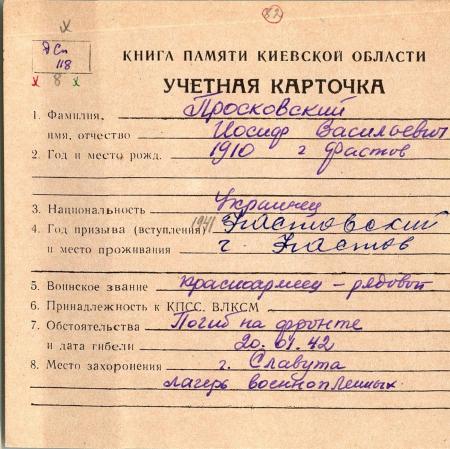 82
х
ДСп
118
х 8 х
КНИГА ПАМЯТИ КИЕВСКОЙ ОБЛАСТИ
УЧЕТНАЯ КАРТОЧКА
1. Фамилия, Просковский
имя, отчество Иосиф Васильевич
2. Год и место рожд. 1910 г Фастов
3. Национальность Украинец
4. Год призыва (вступления) 1941 Фастовский
и место проживания г. Фастов
5. Воинское звание красноармеец – рядовой
6. Принадлежность к КПСС, ВЛКСМ
7. Обстоятельства Погиб на фронте
и дата гибели 20.01.42
8. Место захоронения г. Славута
лагерь военнопленных